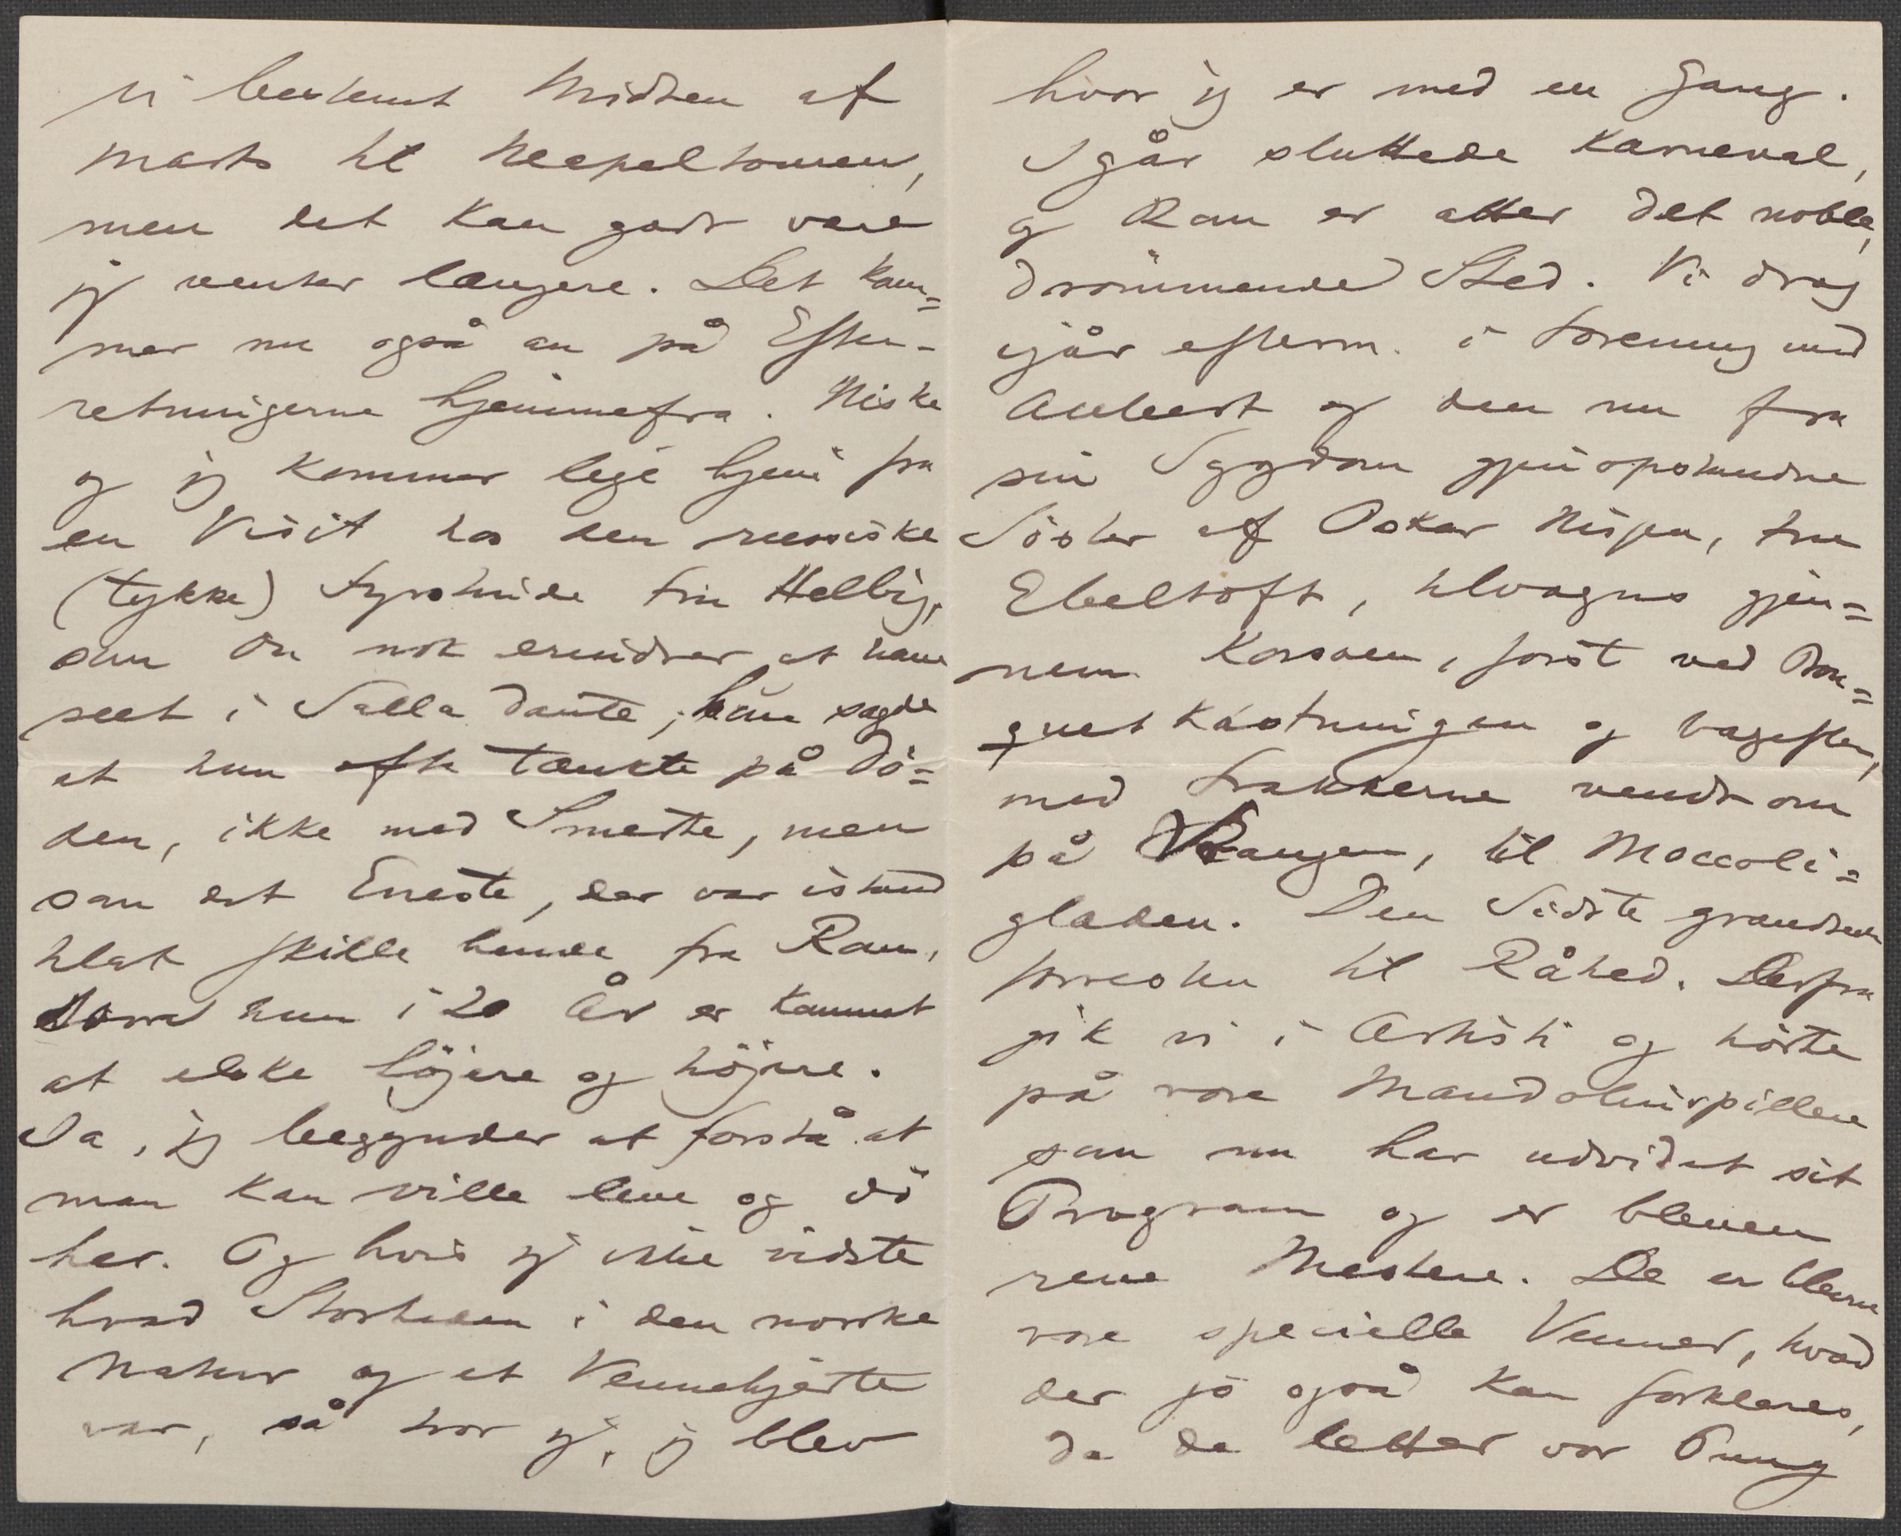 vi bestemt Midten af
Marts til Neapelturen,
men det kan godt være
jeg venter længere. Det kom=
mer nu også an på Efter-
retningerne hjemmefra. Niske
og jeg kommer lige hjem fra
en Visit hos den russiske
(tykke) Fyrstinde Fru Helbig,
som Du nok erindrer at have
seet i Salla Dante; hun sagde
at hun ofte tænkte på Dö=
den, ikke med Smerte, men
som det Eneste, der var istand
til at skille hende fra Rom,
som hun i 20 År er kommet
at elske höjere og höjere.
Ja, jeg begynder at forstå at
man kan ville leve og dö
her. Og hvis jeg ikke vidste
hvad Storheden i den norske
Natur og et Vennehjerte
var, så tror jeg, jeg blev
hvor jeg er med en Gang.
Igår sluttede Karneval,
og Rom er atter det noble,
drömmende Sted. Vi drog
igår efterm. i Forening med
og den nu fra
sin Sygdom gjenopstandne
Söster af Oskar Nissen, Fru
Ebeltoft, tilvogns gjen=
nem Korsoen, först ved Bou=
quetkastningen og bagefter,
med Frakkerne vendt om
på Vrangen, til Moccoli=
glæden. Den Sidste grændsede
forresten til Råhed. Derfra
gik vi i Artisti og hörte
på vore Mandolinspillere
som nu har udvidet sit
Program og er bleven
rene Mestere. De er blevne
vore specielle Venner, hvad
der jo også kan forklares,
da de letter vor Pung